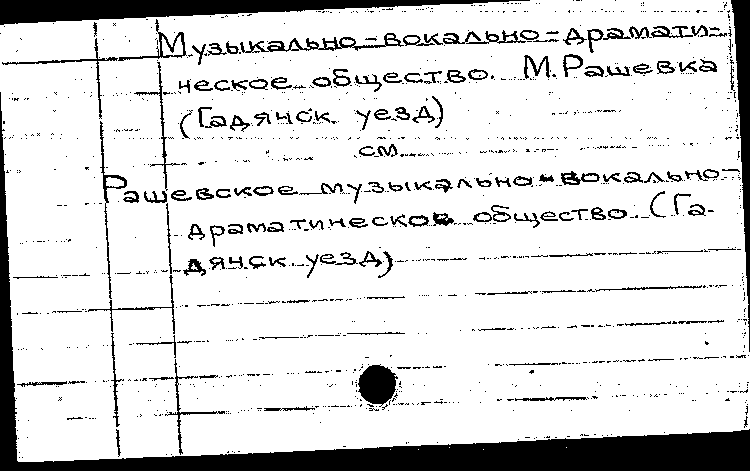 Музыкально-вокально-драмати-
ческое общество. М. Рашевка
(Гадянск. уезд)
см.
Рашевское музыкально-вокально-
драматическое общество (Га-
дянск. уезд)